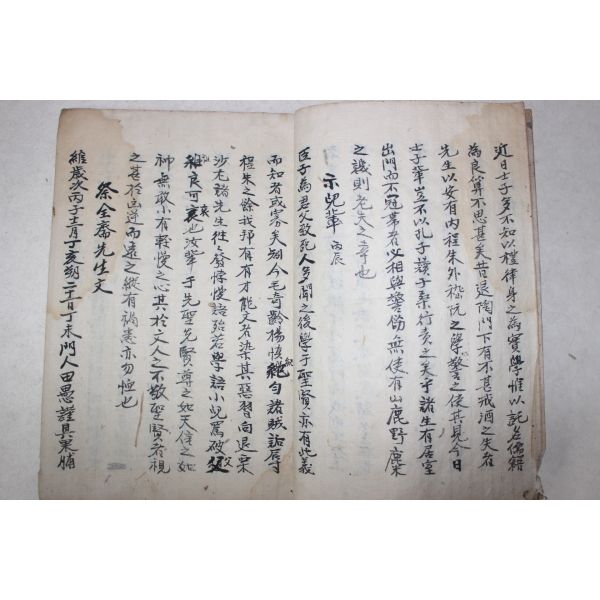 近日士子多不知以禮律身之為實學惟以託名儒籍
為良算不思甚矣昔退陶門下有不甚戒酒之失者
先生以安有內程朱外嵇阮之學警之使其見今日
士子輩豈不以孔子譏子桑行責之矣乎諸生有居室
出門而不冠帶者以相與警飭無使有山鹿野麋
之譏則老夫之幸也
示兒輩 丙辰
臣子為君父致死人多聞之後學于聖賢亦有此義
而知者或寡矣如今毛奇齡楊愼 諸賊詬辰
程朱之餘我邦有有才能文者染其惡習向退栗
沙尤諸先生往々發悖慢語殆若學語小兒罵破父
良可哀也汝輩于先聖先賢尊之如天信之如
神無敢小有輕慢之心其於文人之不敬聖賢者視
之甚於凶逆而遠之縱有禍患亦勿恤也
祭全齋先生文
維歲次丙子十二月丁亥朔二十一日丁未門人田愚謹具果脯